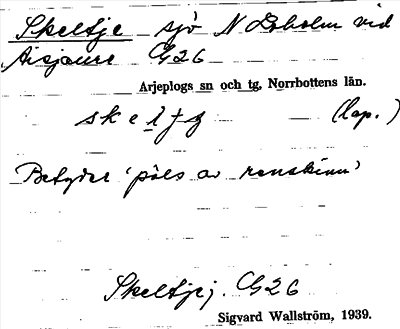 Skeltje sjö N Loholm vid
Aisjaure G26
Arjeplogs sn och tg, Norrbottens län.
skeltʒ (lap.)
Betyder 'päls av renskinn'
Skeltje j. G26
Sigvard Wallström, 1939.